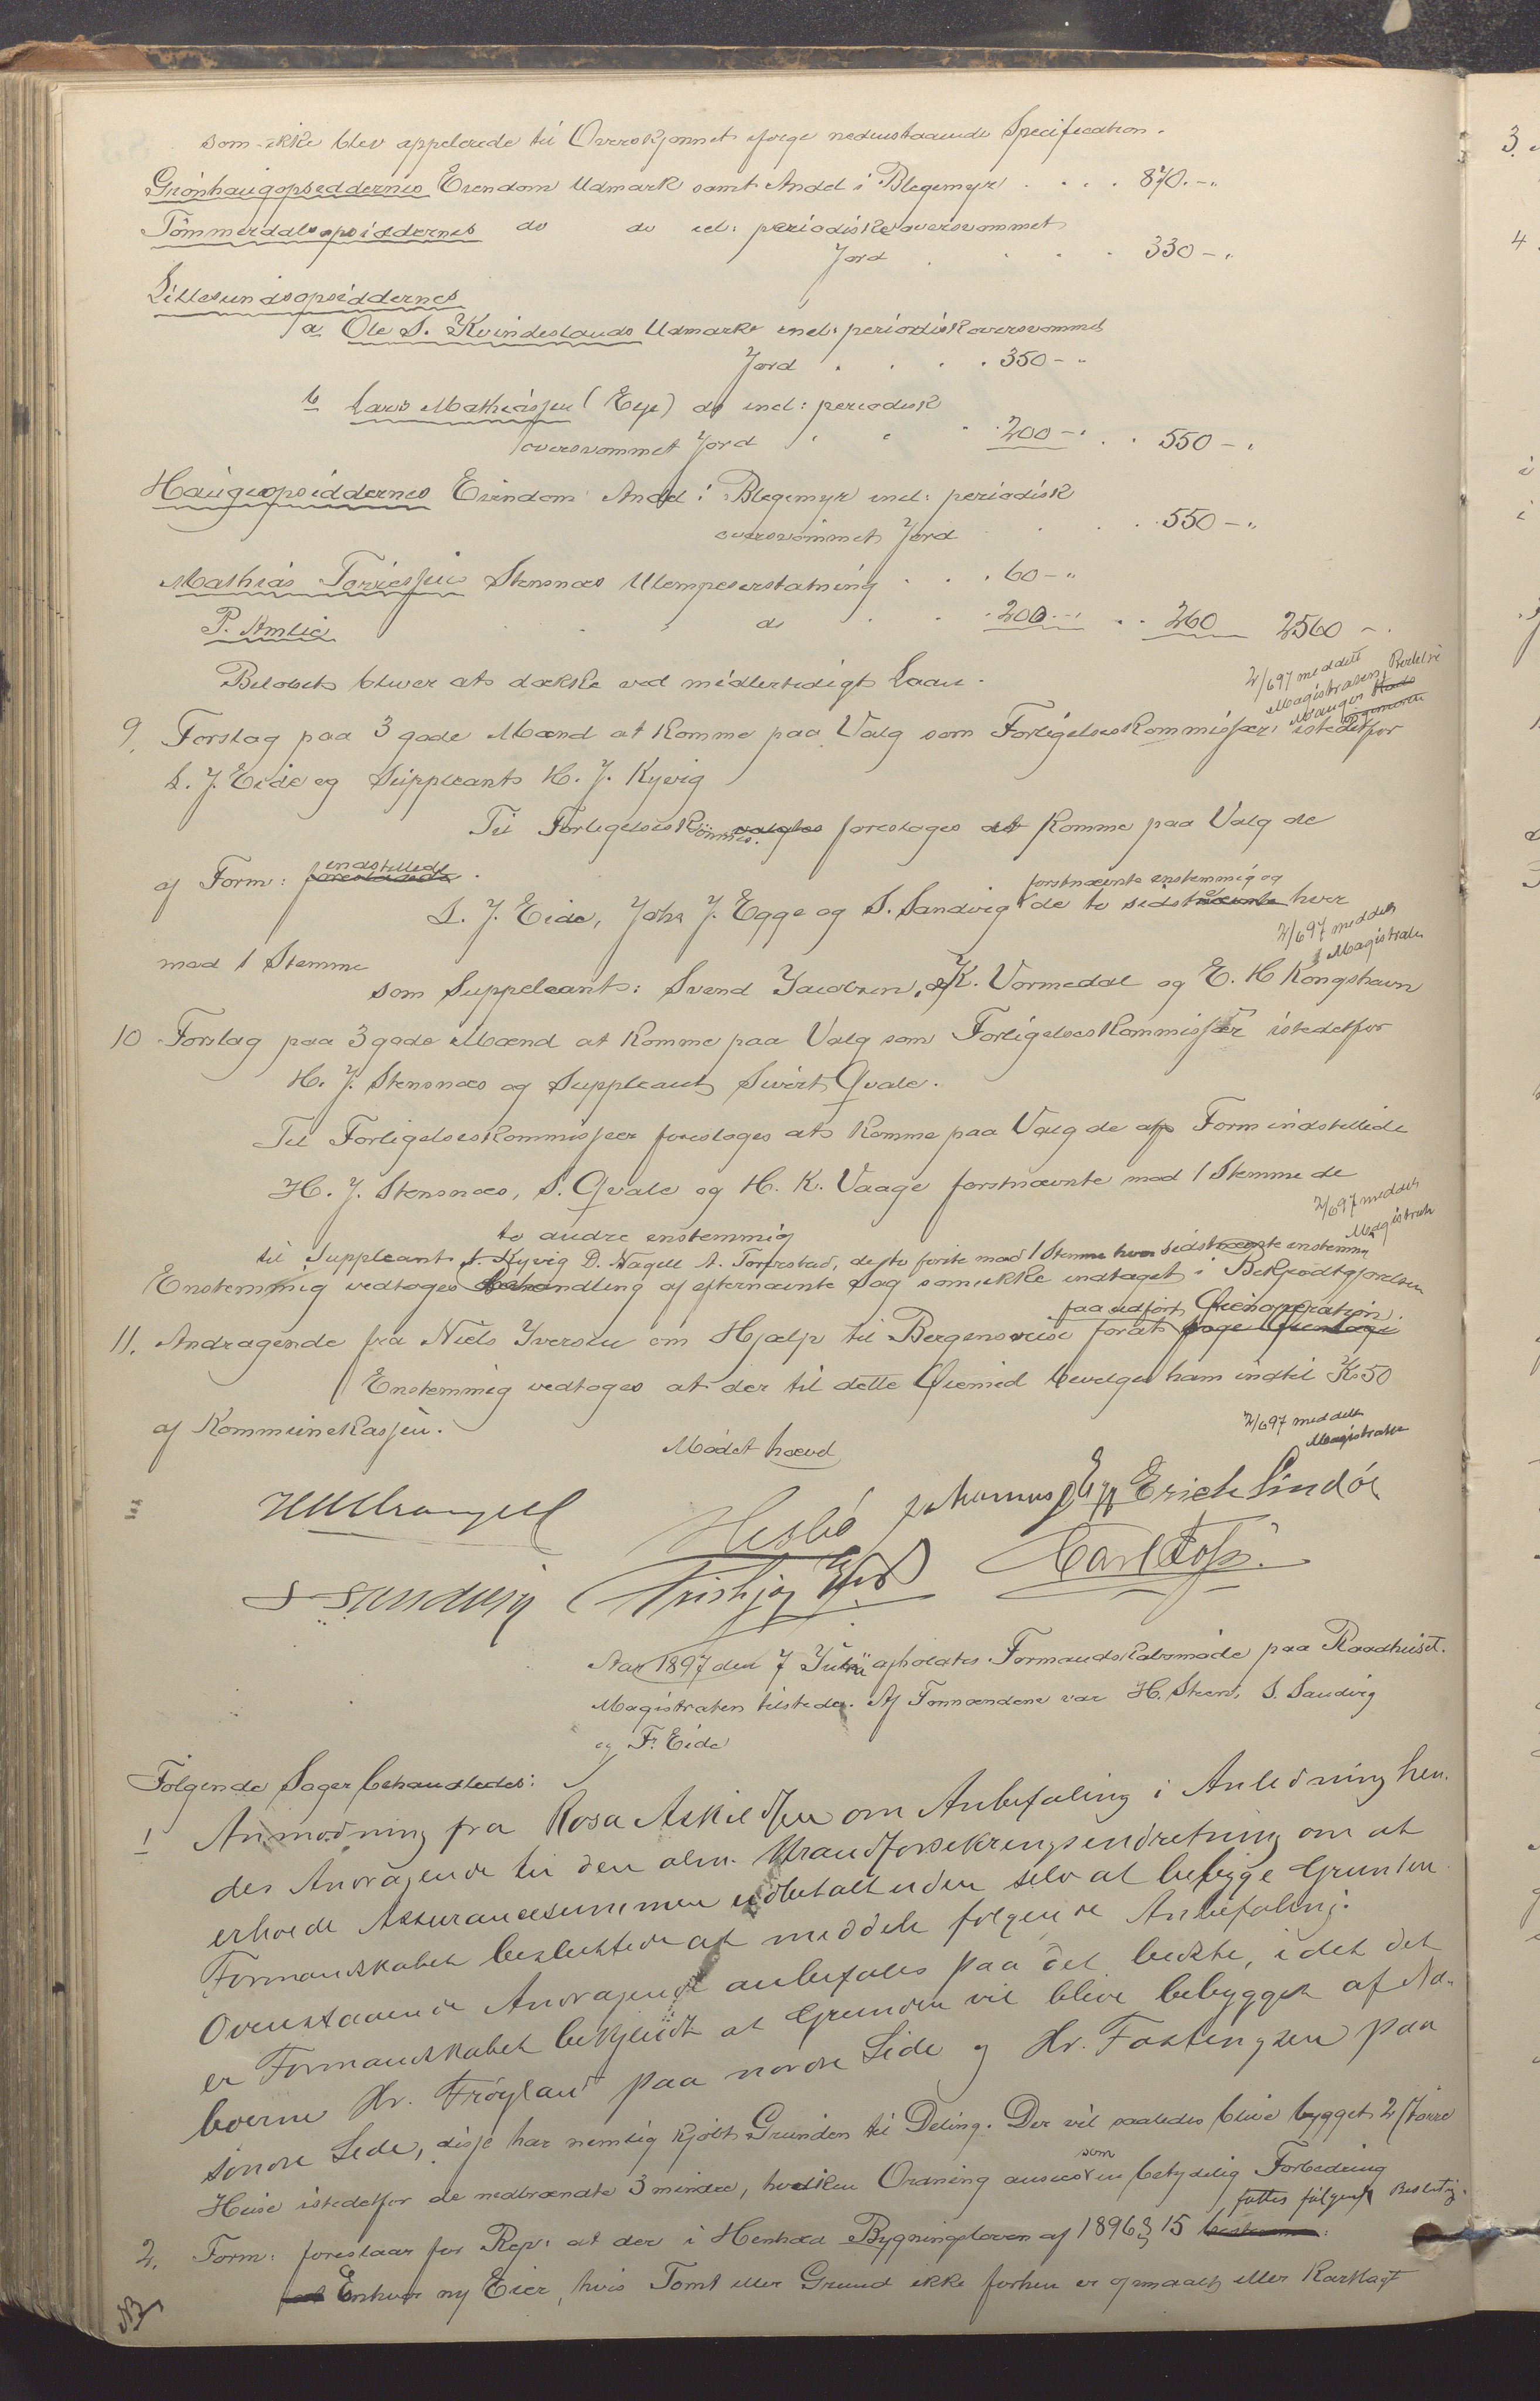 som ikke blev appelerede til Overskjønnet ifølge nedenstaaende Specification.
Grönhaugopsiddernes Eiendom Udmark samt Andel i Blegemyr . . . . 870.-"
Tömmerdalsopsiddernes do do incl: periodiske oversvømmet
Jord . . . . 330 -"
Lillesundsopsiddernes
a Ole S. Kvindeslands Udmark incl: periodisk oversvømmet
Jord . . . . 350 - "
b Lars Mathiassen (Eye) do incl: periodisk
oversvømmet Jord . . . 200 - . . 550 - "
Haugeopsiddernes Eiendom Andel i Blegemyr incl: periodisk
oversvømmet Jord . . . 550 - "
Mathias Torriessen Stensnæs Ulempeserstatning . . . 60 - "
P. Amlie . . . d . . 200 - . . 260 2560 -
Beløbet bliver at dække ved midlertidigt Laan.
2/6 97 meddelt
Magistraten
9. Forslag paa 3 gode Mænd at komme paa Valg som Forligelseskommissær istedetfor
L. J. Eide og Suppleant H. J. Kyvig
Til Forligelseskommis. valgtes foreslages at komme paa Valg de
af Form: foreslaaede indstillede.
førstnævnte enstemmig og
L. J. Eide, Johs J. Egge og S. Sandvig de to sidstnævnte hver
med 1 Stemme
2/6 97 meddelt
Magistraten
som Suppleant: Svend Jacobsen, K. Vormedal og E. H Kongshavn
10 Forslag paa 3 gode Mænd at komme paa Valg som Forligelseskommissær istedetfor
H. J. Stensnæs og Suppleant Sivert Qvale.
Til Forligelseskommissær foreslages at komme paa Valg de af Form indstillede
H. J. Stensnæs, S. Qvale og H. K. Vaage førstnævnte med 1 Stemme de
to andre enstemmig
2/6 97 meddelt
Magistraten
til Suppleant S. Kyvig D. Nagell A. Torrestad, de to første med 1 Stemme hver sidstnævnte enstemmig
Enstemmig vedtoges Behandling af efternævnte Sag som ikke indtaget i Bekjendtgjørelsen
faa udført Øienoperation.
11. Andragende fra Niels Iversen om Hjælp til Bergensreise forat
Enstemmig vedtoges at der til dette Øiemed bevilges ham indtil Kr 50
af Kommunekassen.
2/6 97 meddelt
Magistraten
Mødet hævd
Johannes Egge Erich Lindøe
S Sandvig Fridtjog Eide Carl Foss.
Aar 1897 den 7 Juni afholdtes Formandskabsmøde paa Raadhuset.
Magistraten tilstede. Af Formændene var H. Steen, S. Sandvig
og F. Eide
Følgende Sager behandledes:
1 Anmodning fra Rosa Askildsen om Anbefaling i Anledning hen-
des Andragende til den alm. Brandforsikringsindretning om at
erholde Assurancesummen udbetalt uden selv at bebygge Grunden.
Formandskabet besluttede at meddele følgende Anbefaling:
Ovenstaaende Andragende anbefales paa det bedste, idet det
er Formandskabet bekjendt at Grunden vil blive bebygget af Na-
boerne Hr. Frøyland paa nordre Side og Hr. Fastingsen paa
søndre Side, disse har nemlig kjøbt Grunden til Deling. Der vil saaledes blive bygget 2 større
Huse istedetfor de nedbrændte 3 mindre, hvilken Ordning ansees som en betydelig Forbedring
fattes følgende Beslutng.
2. Form: foreslaar for Rep: at der i Henhold Bygningsloven af 1896 § 15 bestemmes:
at Enhver ny Eier, hvis Tomt eller Grund ikke forhen er opmaalt eller kartlagt